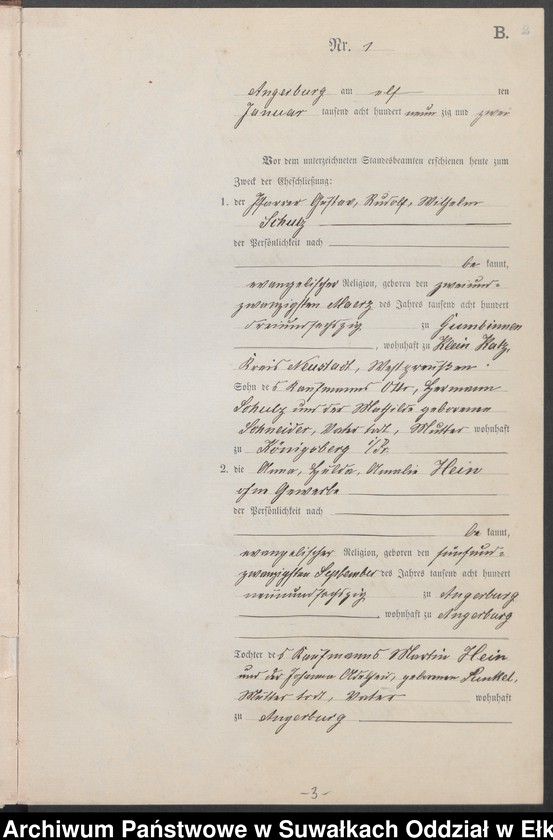 B.
Nr. 1
Angerburg am elf ten
Januar tausend acht hundert neun zig und zwei
Vor dem unterzeichneten Standesbeamten erschienen heute zum
Zweck der Eheschließung:
1. der Pfarrer Gustav, Rudolf, Wilhelm
Schulz
der Persönlichkeit nach
be kannt,
evangelischer Religion, geboren den zweiund-
zwanzigsten Maerz des Jahres tausend acht hundert
dreiundsechzig zu Gumbinnen
, wohnhaft zu Klein Katz,
Kreis Neustadt, Westpreußen
Sohn des Kaufmanns Otto, Hermann
Schulz und der Mathilde geborenen
Schneider, Vater todt, Mutter wohnhaft
zu Königsberg i/Pr.
2. die Anna, Hulda, Amalie Hein
ohne Gewerbe
der Persönlichkeit nach
be kannt,
evangelischer Religion, geboren den fünfund-
zwanzigsten September des Jahres tausend acht hundert
neunundsechzig zu Angerburg
, wohnhaft zu Angerburg
Tochter des Kaufmanns Martin Hein
und der Johanna geborenen
Mutter todt, Vater wohnhaft
zu Angerburg
-3-
Archiwum Państwowe w Suwałkach Oddział w Ełk